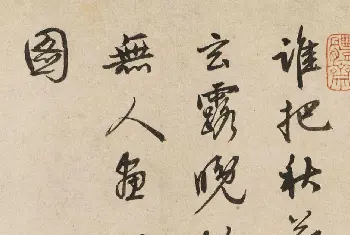 誰把秋
玄露晚
無人畫
圖